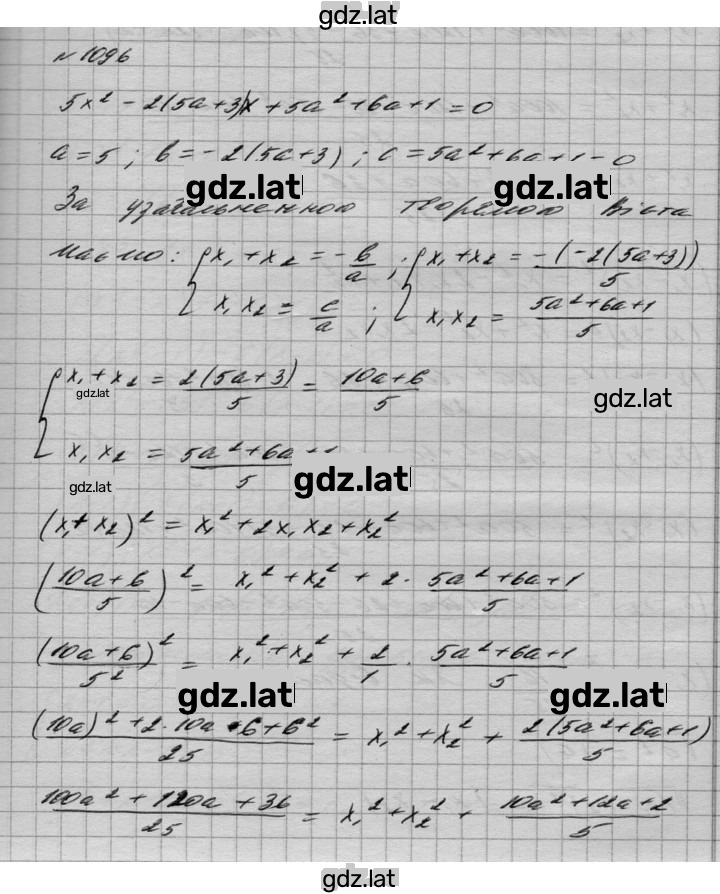 gdz.lat
№ 1096
5x² - 2(5a+3)x + 5a² + 6a + 1 = 0
a = 5 ; b = -2(5a+3) ; c = 5a² + 6a + 1 - 0
gdz.lat gdz.lat
За узагальненною теоремою Вієта
маємо: { x₁ + x₂ = -b/a ; { x₁ + x₂ = -(-2(5a+3))/5
x₁ x₂ = c/a ; x₁ x₂ = (5a²+6a+1)/5
{ x₁ + x₂ = 2(5a+3)/5 = (10a+6)/5
gdz.lat gdz.lat
x₁ x₂ = (5a²+6a+1)/5
gdz.lat gdz.lat
(x₁ + x₂)² = x₁² + 2x₁x₂ + x₂²
((10a+6)/5)² = x₁² + x₂² + 2 · (5a²+6a+1)/5
(10a+6)²/5² = x₁² + x₂² + 2/1 · (5a²+6a+1)/5
gdz.lat gdz.lat
((10a)² + 2·10a·6 + 6²)/25 = x₁² + x₂² + 2(5a²+6a+1)/5
(100a² + 120a + 36)/25 = x₁² + x₂² + (10a²+12a+2)/5
gdz.lat